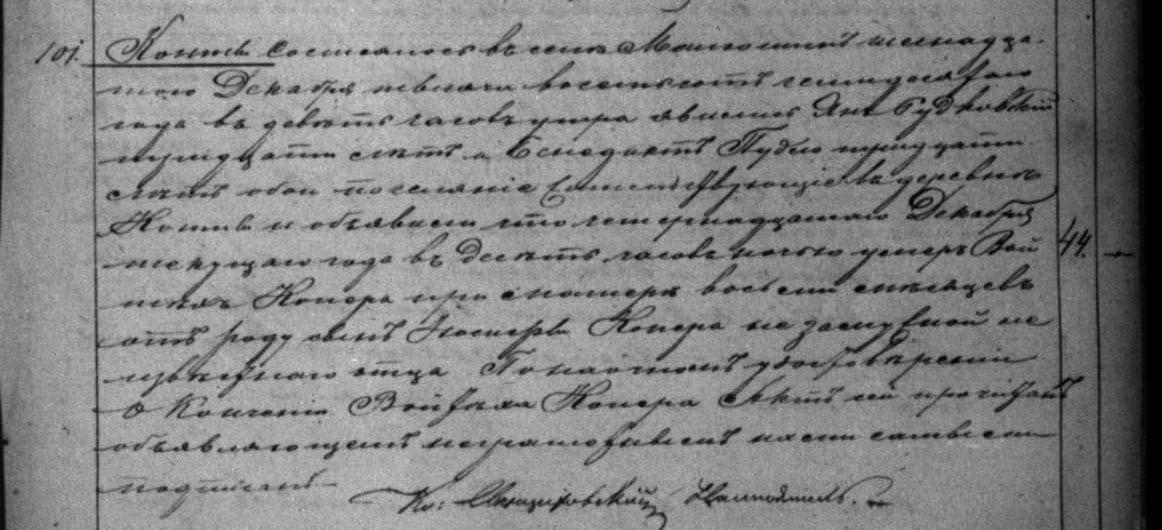 101. Коните Состоялось въ селе Малюшинѣ шеснадца-
таго Декабря тысяча восемьсотъ семидесятаго
года въ девять часовъ утра явились Янъ Рудковскій
тридцати лѣтъ и Бенедиктъ тридцати
лѣтъ оба поселяне жительствующіе въ деревнѣ
Коните и объявили что четырнадцатаго Декабря
текущаго года въ десять часовъ ночью умеръ Вой 44.
тѣхъ Копера при матери восьми мѣсяцевъ
отъ роду сынъ Копера не замужной не
извѣстнаго отца По наочномъ удостовѣреніи
о Кончинѣ Войтѣха Копера Актъ сей прочитанъ
объявляющимъ неграмотнымъ нами самыми
подписанъ
Кс: